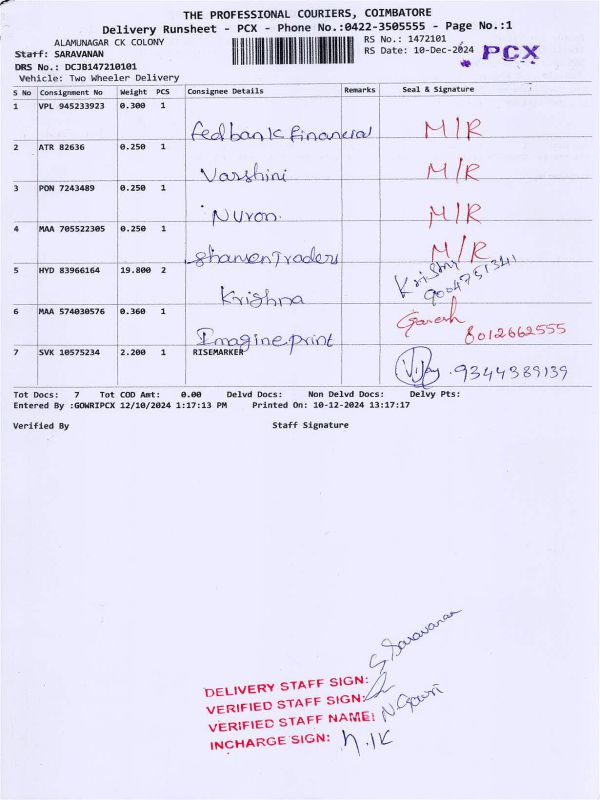 THE PROFESSIONAL COURIERS, COIMBATORE
Delivery Runsheet - PCX - Phone No.:0422-3505555 - Page No.:1
ALAMUNAGAR CK COLONY
RS No.: 1472101
Staff: SARAVANAN
RS Date: 10-Dec-2024 PCX
DRS No.: DCJB147210101
Vehicle: Two Wheeler Delivery
S No Consignment No Weight PCS Consignee Details Remarks Seal & Signature
1 VPL 945233923 0.300 1
fedbank financial M/R
2 ATR 82636 0.250 1
Varshini M/R
3 PON 7243489 0.250 1
Nuron. M/R
4 MAA 705522305 0.250 1
Traders M/R
5 HYD 83966164 19.800 2
Krishna
6 MAA 574030576 0.360 1
Imagine print Ganesh 8012662555
7 SVK 10575234 2.200 1 RISEMARKER
Vijay . 9344389139
Tot Docs: 7 Tot COD Amt: 0.00 Delvd Docs: Non Delvd Docs: Delvy Pts:
Entered By :GOWRIPCX 12/10/2024 1:17:13 PM Printed On: 10-12-2024 13:17:17
Verified By Staff Signature
DELIVERY STAFF SIGN: S Saravanan
VERIFIED STAFF SIGN:
VERIFIED STAFF NAME: N Gowri
INCHARGE SIGN: